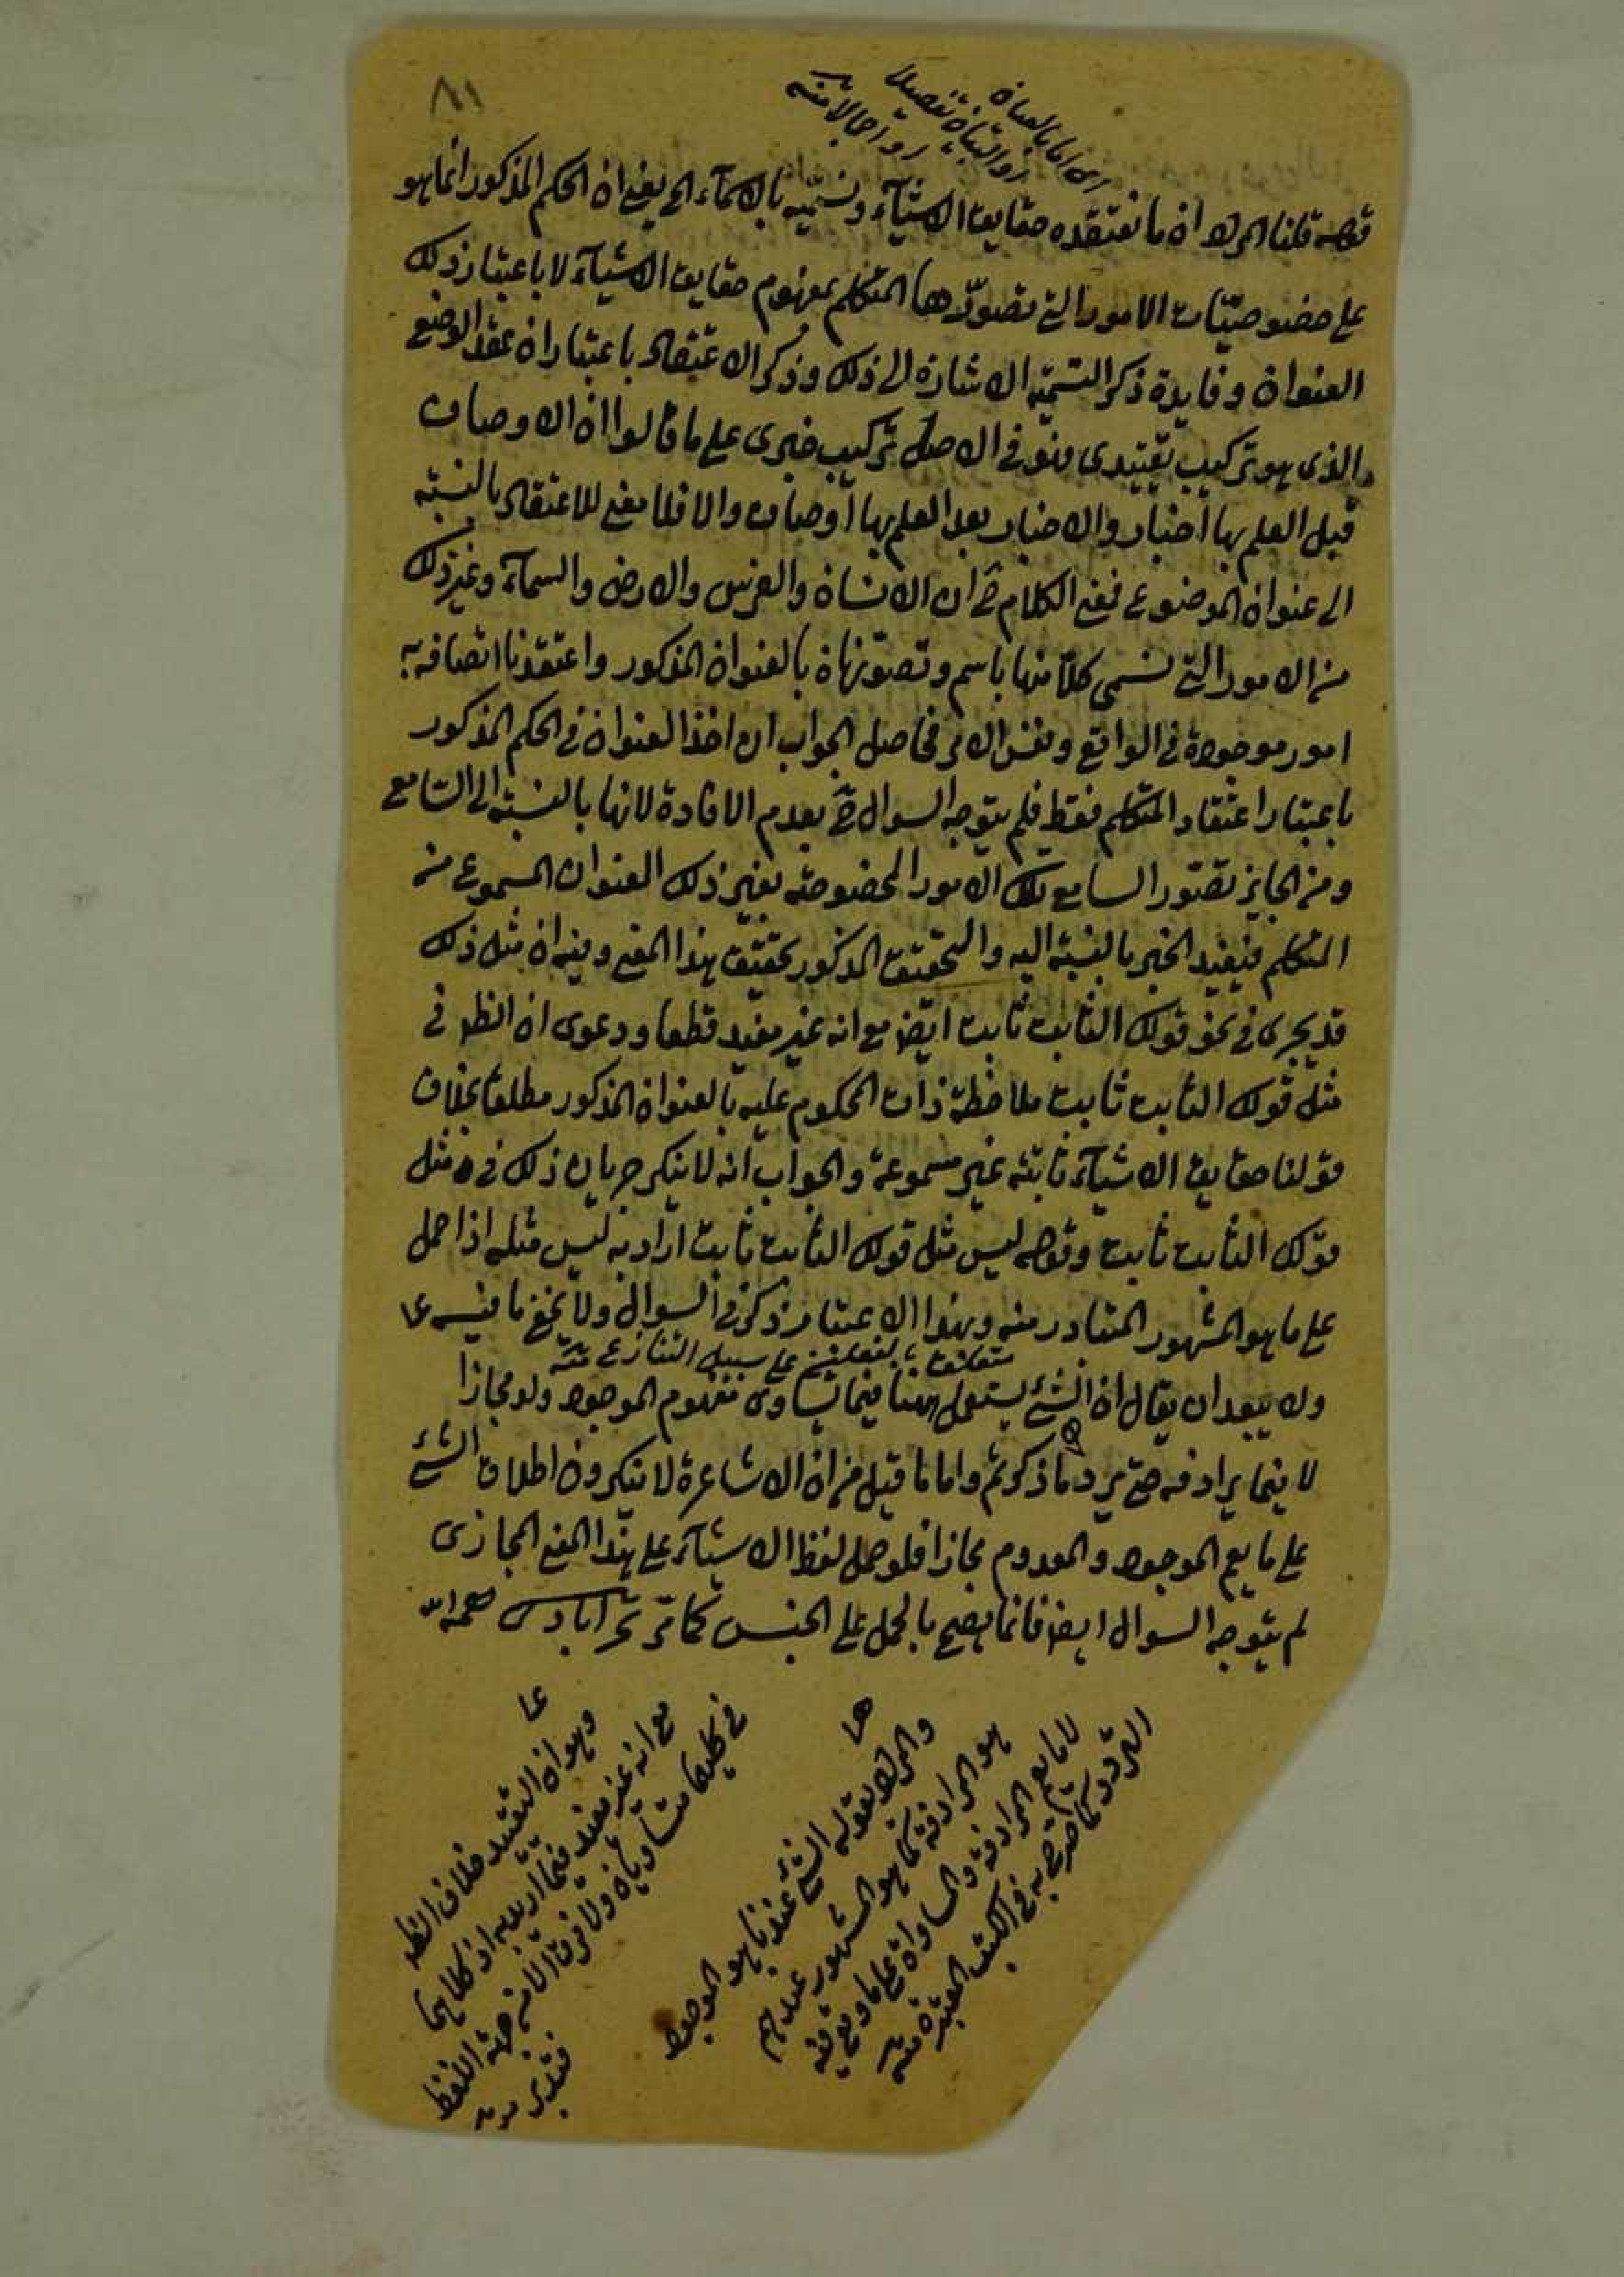 ٨١
قوله قلنا المراد ان ما نعتقده حقايق الاشيآء ونسميه بالاسمآء الخ يعني ان الحكم المذكور انما هو
على خصوصيّات الامور التي تصوّرها المتكلم بمفهوم حقايق الاشيآء لا باعتبار ذلك
العنوان وفايدة ذكر التسمية الاشارة الى ذلك وذكر الاعتقاد باعتبار ان عقد الوضع
الذي هو تركيب تقييدي فهو في الاصل تركيب خبري على ما قالوا ان الاوصاف
قبل العلم بها اخبار والاخبار بعد العلم بها اوصاف والا فلا معنى للاعتقاد بالنسبة
الى عنوان الموضوع فمعنى الكلام ح ان الانسان والفرس والارض والسمآء وغير ذلك
من الامور التي نسمى كلاّ منها باسم وتصورناه بالعنوان المذكور واعتقدنا اتصافه به
امور موجودة في الواقع ونفس الامر فحاصل الجواب ان اخذ العنوان في الحكم المذكور
باعتبار اعتقاد المتكلم فقط فلم يتوجه السوال ح بعدم الافادة لانها بالنسبة الى السامع
ومن الجايز تصور السامع تلك الامور المخصوصة بغير ذلك العنوان المسموع من
المتكلم فيفيد الخبر بالنسبة اليه والتحقيق المذكور تحقيق هذا المعنى وفيه ان مثل ذلك
قد يجرى في نحو قولك الثابت ثابت ايضا مع انه غير مفيد قطعا ودعوى ان الظ في
مثل قولك الثابت ثابت ملاحظة ذات المحكوم عليه بالعنوان المذكور مطلقا بخلاف
قولنا حقايق الاشيآء ثابتة غير مسموعة والجواب انه لا ينكر جريان ذلك في مثل
قولك الثابت ثابت وقوله ليس مثل قولك الثابت ثابت اراد به ليس مثله اذا حمل
على ما هو المشهور المتبادر منه وبهذا الاعتبار ذكر في السوال ولا يخفى ما فيه عا
متعلق بالفعلين على سبيل التنازع منه
ولا يبعد ان يقال ان الشئ يستعمل ههنا فيما يساوى مفهوم الموجود ولو مجازا
لا فيما يرادفه حتى يرد ما ذكرتم واما ما قيل من ان الاشاعرة لا ينكرون اطلاق الشئ
على ما يعم الموجود والمعدوم مجازا فلو حمل لفظ الاشيآء على هذا المعنى المجازى
لم يتوجه السوال ايضا فانما يصح بالحمل على الجنس كما مر
عا
وهو ان التقييد خلاف الظ
مع انه غير مفيد فيما اريد به اذ كلاهما
في كليهما متساويان ولا فرق الا من جهة اللفظ
فتدبر منه
ها
والمراد بقوله الشئ عندنا هو الموجود
هو المرادفة كما هو المشهور عندهم
لا ما يعم المرادفة والمساواة على ما وقع فيه
التردد كما صرح به في الكتب المعتبرة منه